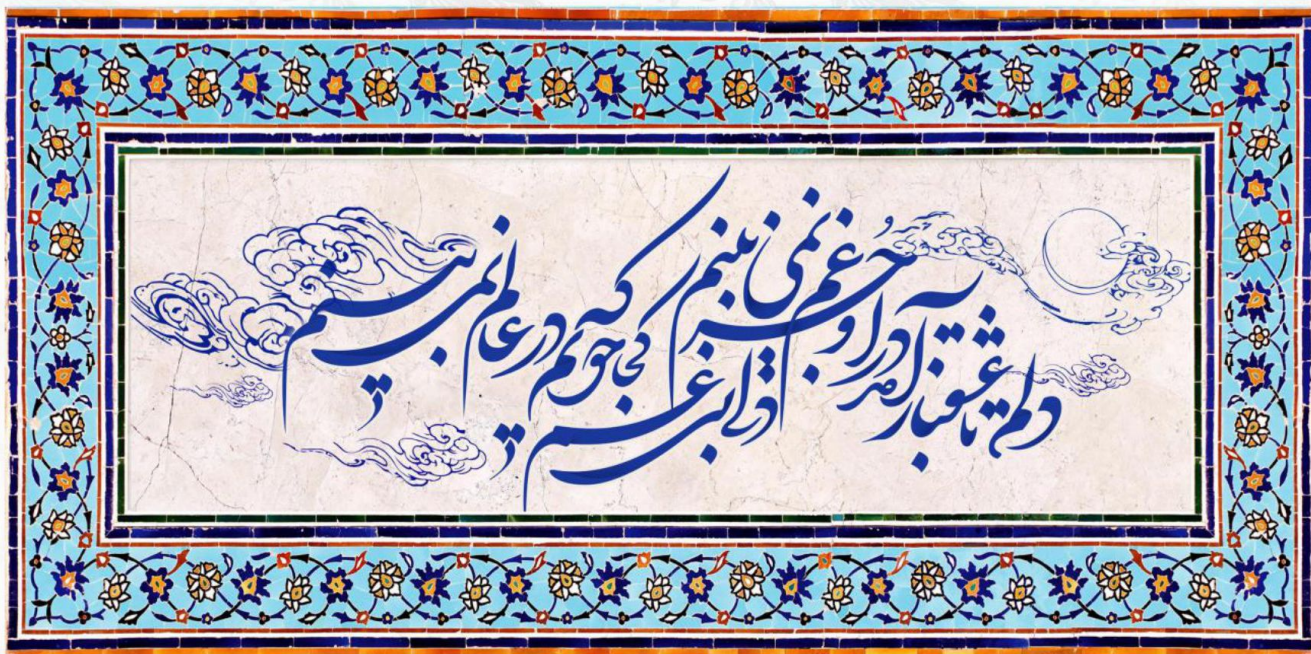 دلم تا عشقباز آمد در او جُز غم نمی بینم
دلی بی غم کجا جویم که در عالم نمی بینم